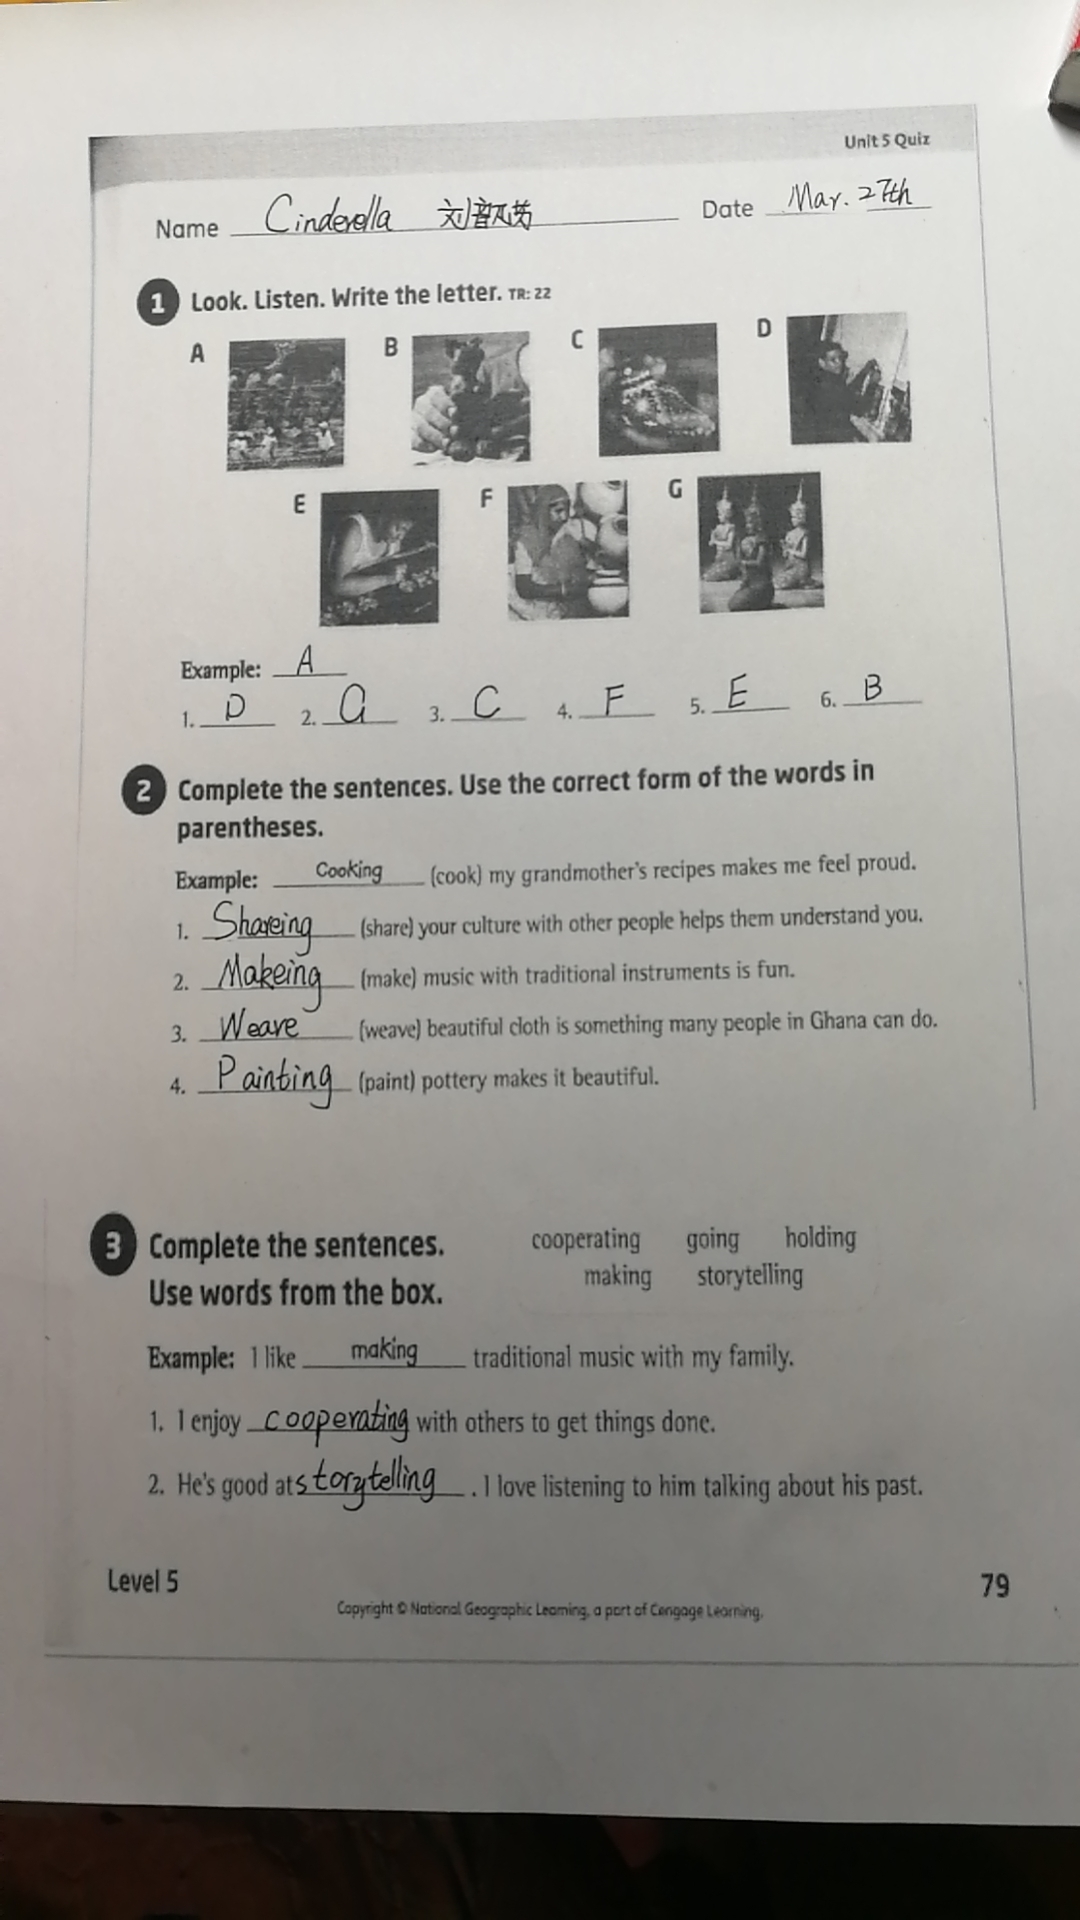 Unit 5 Quiz
Name Cinderella 刘 Date Mar. 27th
1 Look. Listen. Write the letter. TR: 22
A B C D
E F G
Example: A
1. D 2. G 3. C 4. F 5. E 6. B
2 Complete the sentences. Use the correct form of the words in
parentheses.
Example: Cooking (cook) my grandmother's recipes makes me feel proud.
1. Shareing (share) your culture with other people helps them understand you.
2. Makeing (make) music with traditional instruments is fun.
3. Weave (weave) beautiful cloth is something many people in Ghana can do.
4. Painting (paint) pottery makes it beautiful.
3 Complete the sentences. cooperating going holding
Use words from the box. making storytelling
Example: I like making traditional music with my family.
1. I enjoy cooperating with others to get things done.
2. He's good at storytelling. I love listening to him talking about his past.
Level 5 79
Copyright © National Geographic Learning, a part of Cengage Learning.